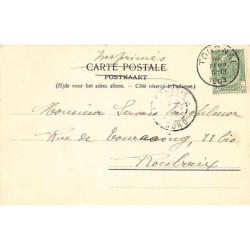 Imprimés
CARTE POSTALE
POSTKAART
(Zijde voor het adres alleen. - Côté réservé à l'adresse.)
Monsieur Servais
Rue de Tourcoing, 22 bis
Roubaix